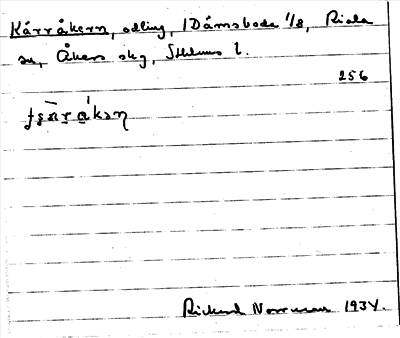 Kärråkern, odling, Dåmsboda 1/8, Riala
sn, Åkers skg, Sthlms l.
256
Rickard Norrman 1934.